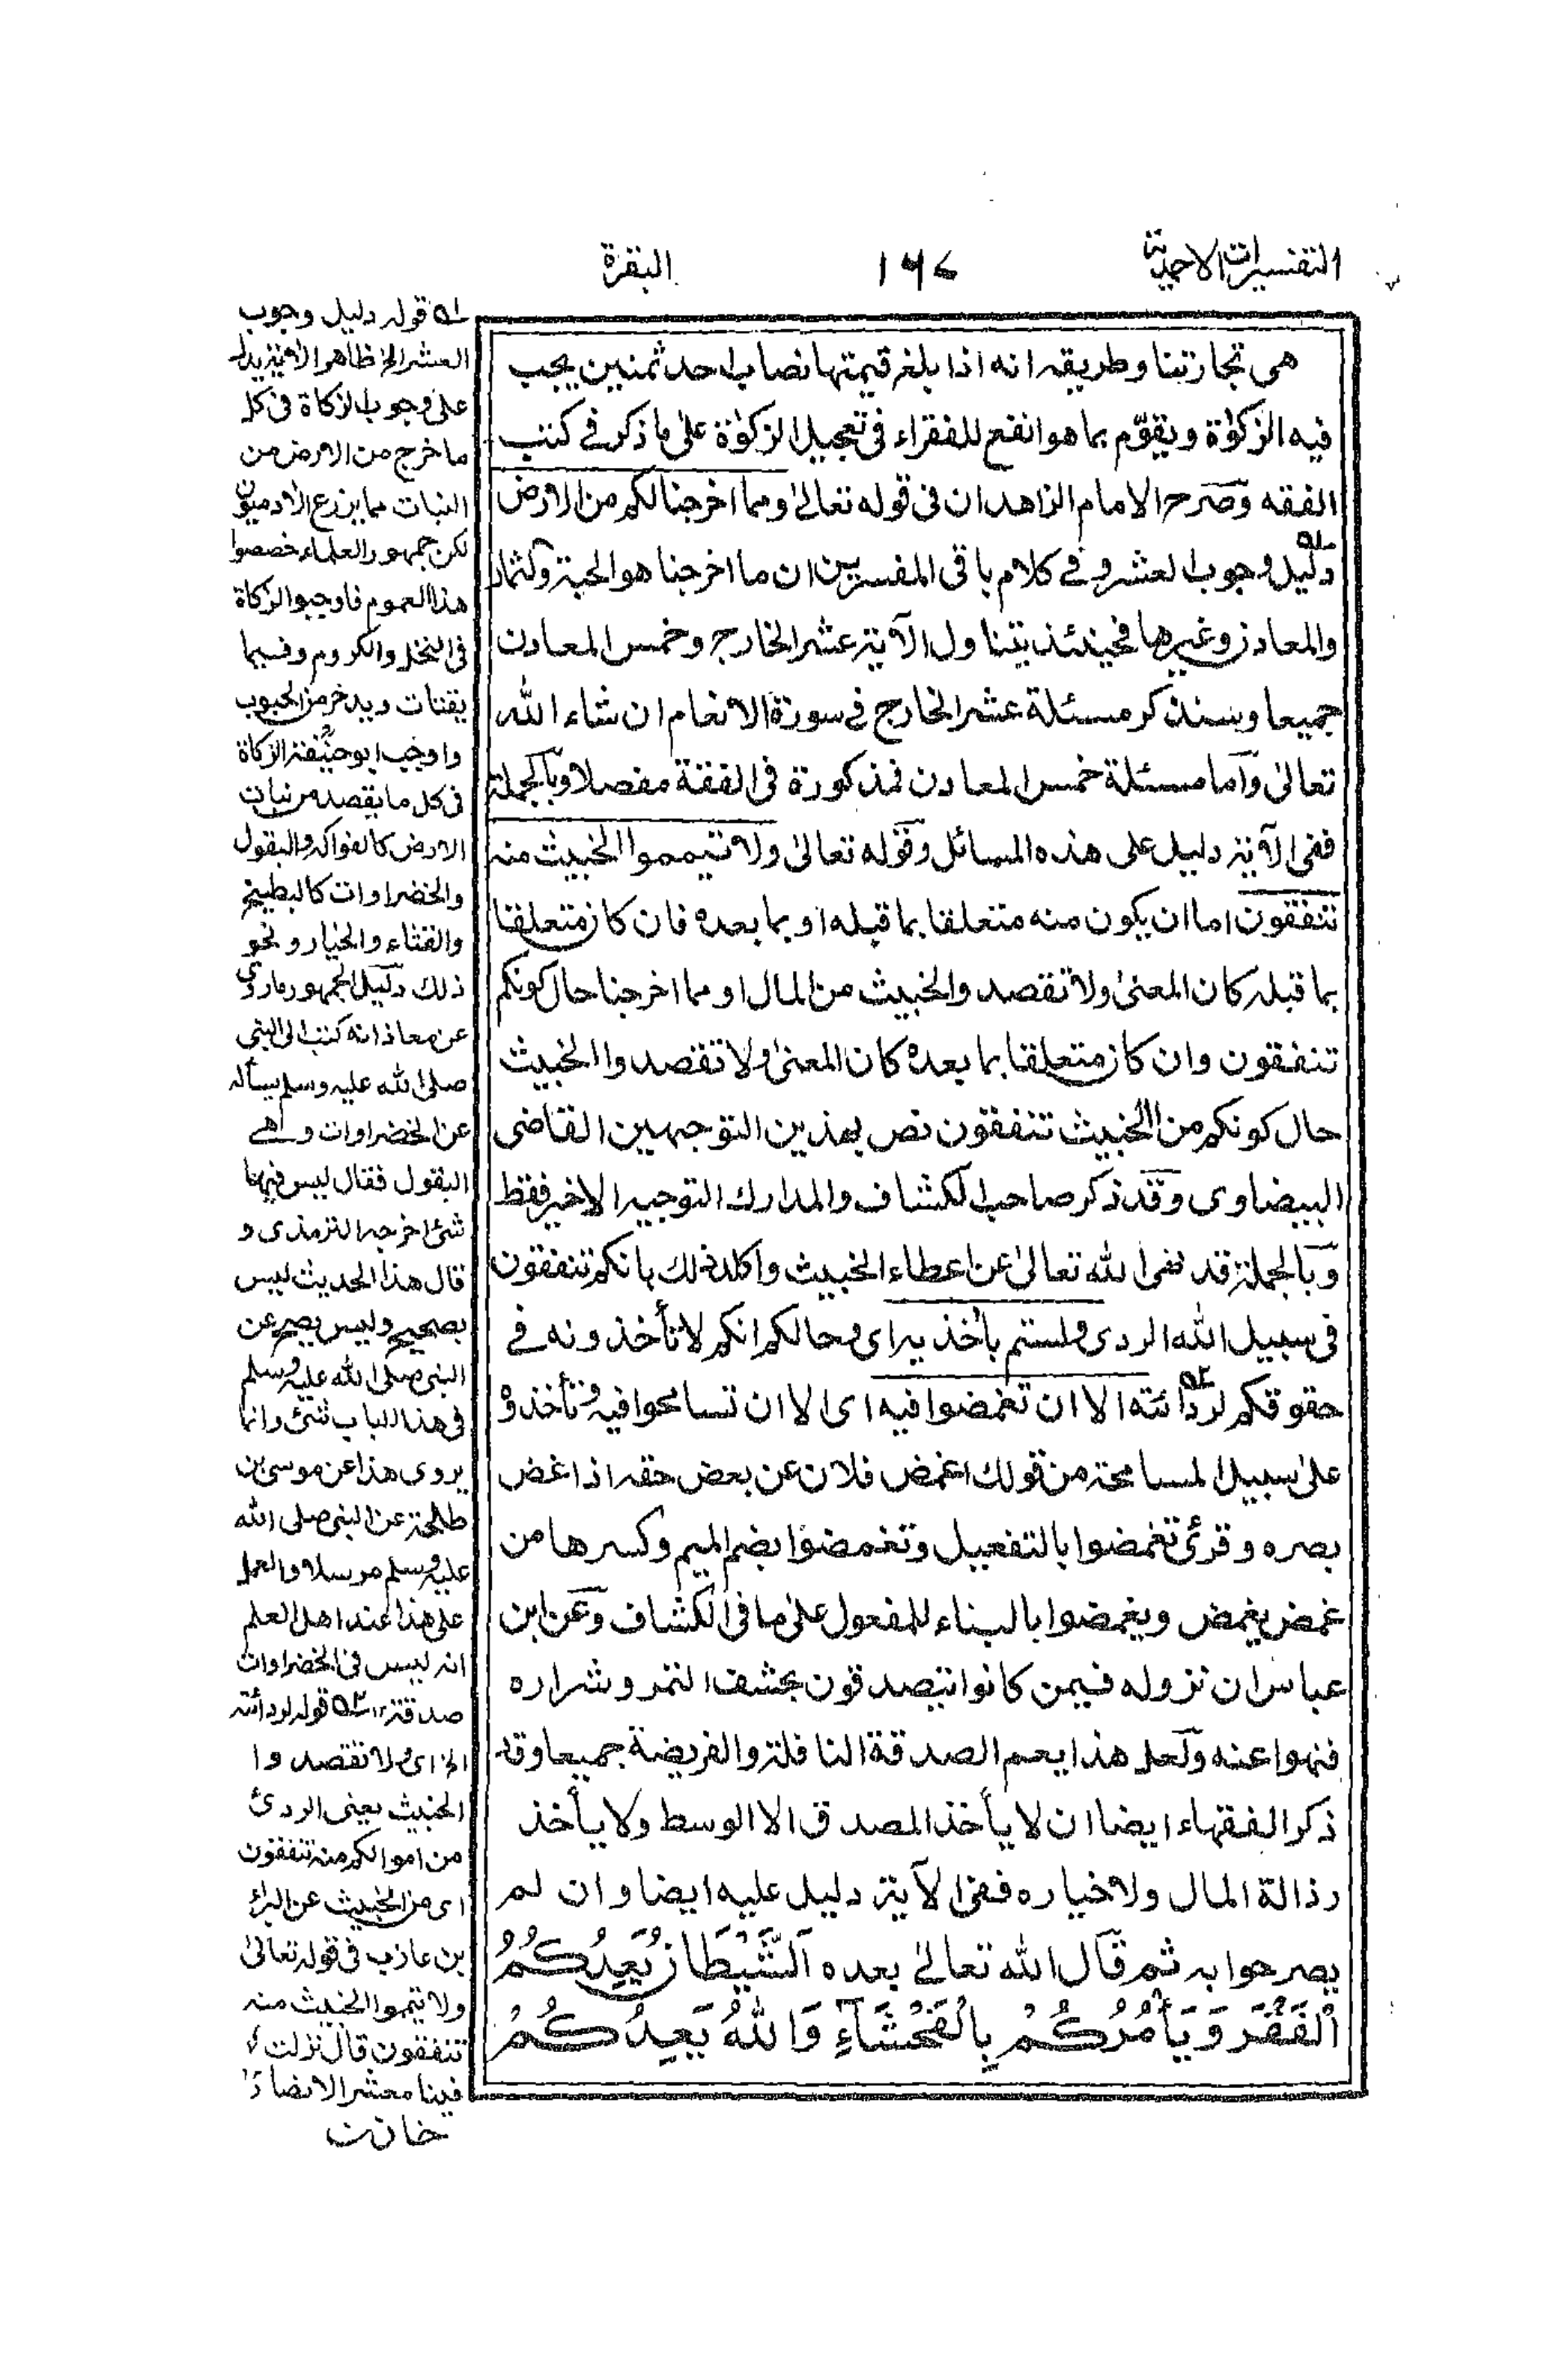 التفسيرات الاحمدية
١٦٧
البقرة
هى تجارتنا وطريقه انه اذا بلغ قيمتها نصاب احد ثمنين يجب
فيه الزكوٰة ويقوّم بما هو انفع للفقراء فى تعجيل الزكوٰة علىٰ ما ذكر فے كتب
الفقه وصرح الامام الزاهد ان فى قوله تعالىٰ ومما اخرجنا لكم من الارض
دليل وجوب العشر و فے كلام باقى المفسرين ان ما اخرجنا هو الحبة والثمار
والمعادن وغيرها فحينئذ يتناول الآية عشر الخارج وخمس المعادن
جميعا وسنذكر مسئلة عشر الخارج فے سورة الانعام ان شاء الله
تعالىٰ واما مسئلة خمس المعادن فمذكورة فى الفقة مفصلا وبالجملة
ففى الآية دليل على هذه المسائل وقوله تعالىٰ ولا تيمموا الخبيث منه
تنفقون اما ان يكون منه متعلقا بما قبله او بما بعده فان كان متعلقا
بما قبله كان المعنىٰ ولا تقصدوا الخبيث من المال او مما اخرجنا حال كونكم
تنفقون وان كان متعلقا بما بعده كان المعنىٰ ولا تقصدوا الخبيث
حال كونكم من الخبيث تنفقون نص بهذين التوجهين القاضى
البيضاوى وقد ذكر صاحب الكشاف والمدارك التوجيه الاخير فقط
وبالجملة قد نهى الله تعالىٰ عن اعطاء الخبيث واكد ذلك بانكم تنفقون
فى سبيل الله الردى ولستم بأخذيه اى وحالكم انكم لا تأخذونه فے
حقوقكم لردائته الا ان تغمضوا فيه اى الا ان تسامحوا فيه وتأخذوه
علىٰ سبيل المسامحة من قولك اغمض فلان عن بعض حقه اذا غض
بصره وقرئ تغمضوا بالتفعيل وتغمضوا بضم الميم وكسرها من
غمض يغمض ويغمضوا بالبناء للمفعول علىٰ ما فى الكشاف وعن ابن
عباس ان نزوله فيمن كانوا يتصدقون بحشف التمر وشراره
فنهوا عنه ولعل هذا يعم الصدقة النافلة والفريضة جميعا وقد
ذكر الفقهاء ايضا ان لا يأخذ المصدق الا الوسط ولا يأخذ
رذالة المال ولا خياره ففى الآية دليل عليه ايضا وان لم
يصرحوا به ثم قال الله تعالىٰ بعده اَلشَّيْطَانُ يَعِدُكُمُ
الْفَقْرَ وَيَأْمُرُكُمْ بِالْفَحْشَآءِ وَاللهُ يَعِدُكُمْ
له قوله دليل وجوب
العشر الخ ظاهر الآية يدل
على وجوب الزكاة فى كل
ما خرج من الارض من
النبات مما يزرع الآدميون
لكن جمهور العلماء خصصوا
هذا العموم فاوجبوا الزكاة
فى النخل والكروم وفيما
يقتات ويدخر من الحبوب
واوجب ابو حنيفة الزكاة
فى كل ما يقصد من نبات
الارض كالفواكه والبقول
والخضراوات كالبطيخ
والقثاء والخيار ونحو
ذلك دليل الجمهور ما روى
عن معاذ انه كتب الى النبى
صلى الله عليه وسلم يسأله
عن الخضراوات وهے
البقول فقال ليس فيها
شئ اخرجه الترمذى و
قال هذا الحديث ليس
بصحيح وليس يصح عن
النبى صلى الله عليه وسلم
فى هذا الباب شئ وانما
يروى هذا عن موسى بن
طلحة عن النبى صلى الله
عليه وسلم مرسلا والعمل
على هذا عند اهل العلم
انه ليس فى الخضراوات
صدقة ١٢ ٢ه قوله لردائته
الخ اى ولا تقصدوا
الخبيث يعنى الردئ
من اموالكم منه تنفقون
اى من الخبيث عن البراء
بن عازب فى قوله تعالىٰ
ولا تيمموا الخبيث منه
تنفقون قال نزلت
فينا معشر الانصار
خازن